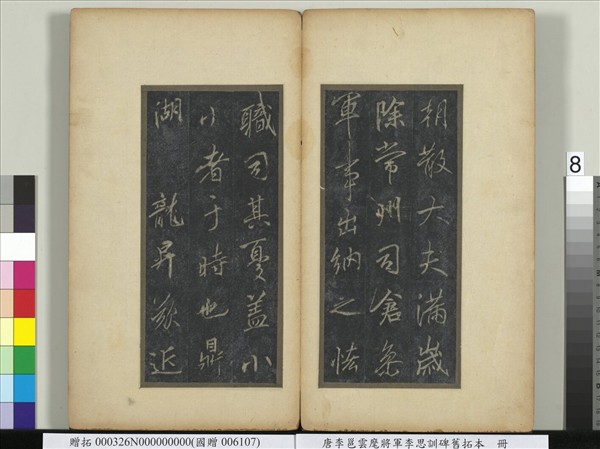 朝散大夫滿歲
除常州司倉參
軍事出納之恡
職司其憂蓋小
小者于時也鼎
湖 龍昇 近
8
贈拓 000326N000000000(國贈 006107)
唐李邕雲麾將軍李思訓碑舊拓本 冊